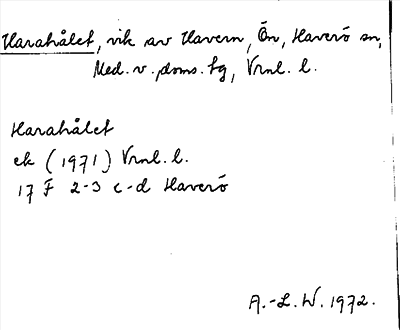 Harahålet, vik av Havern, Ön, Haverö sn,
Med. v. doms. tg, Vrnl. l.
Harahålet
ek (1971) Vrnl. l.
17 F 2-3 c-d Haverö
A.-L. W. 1972.